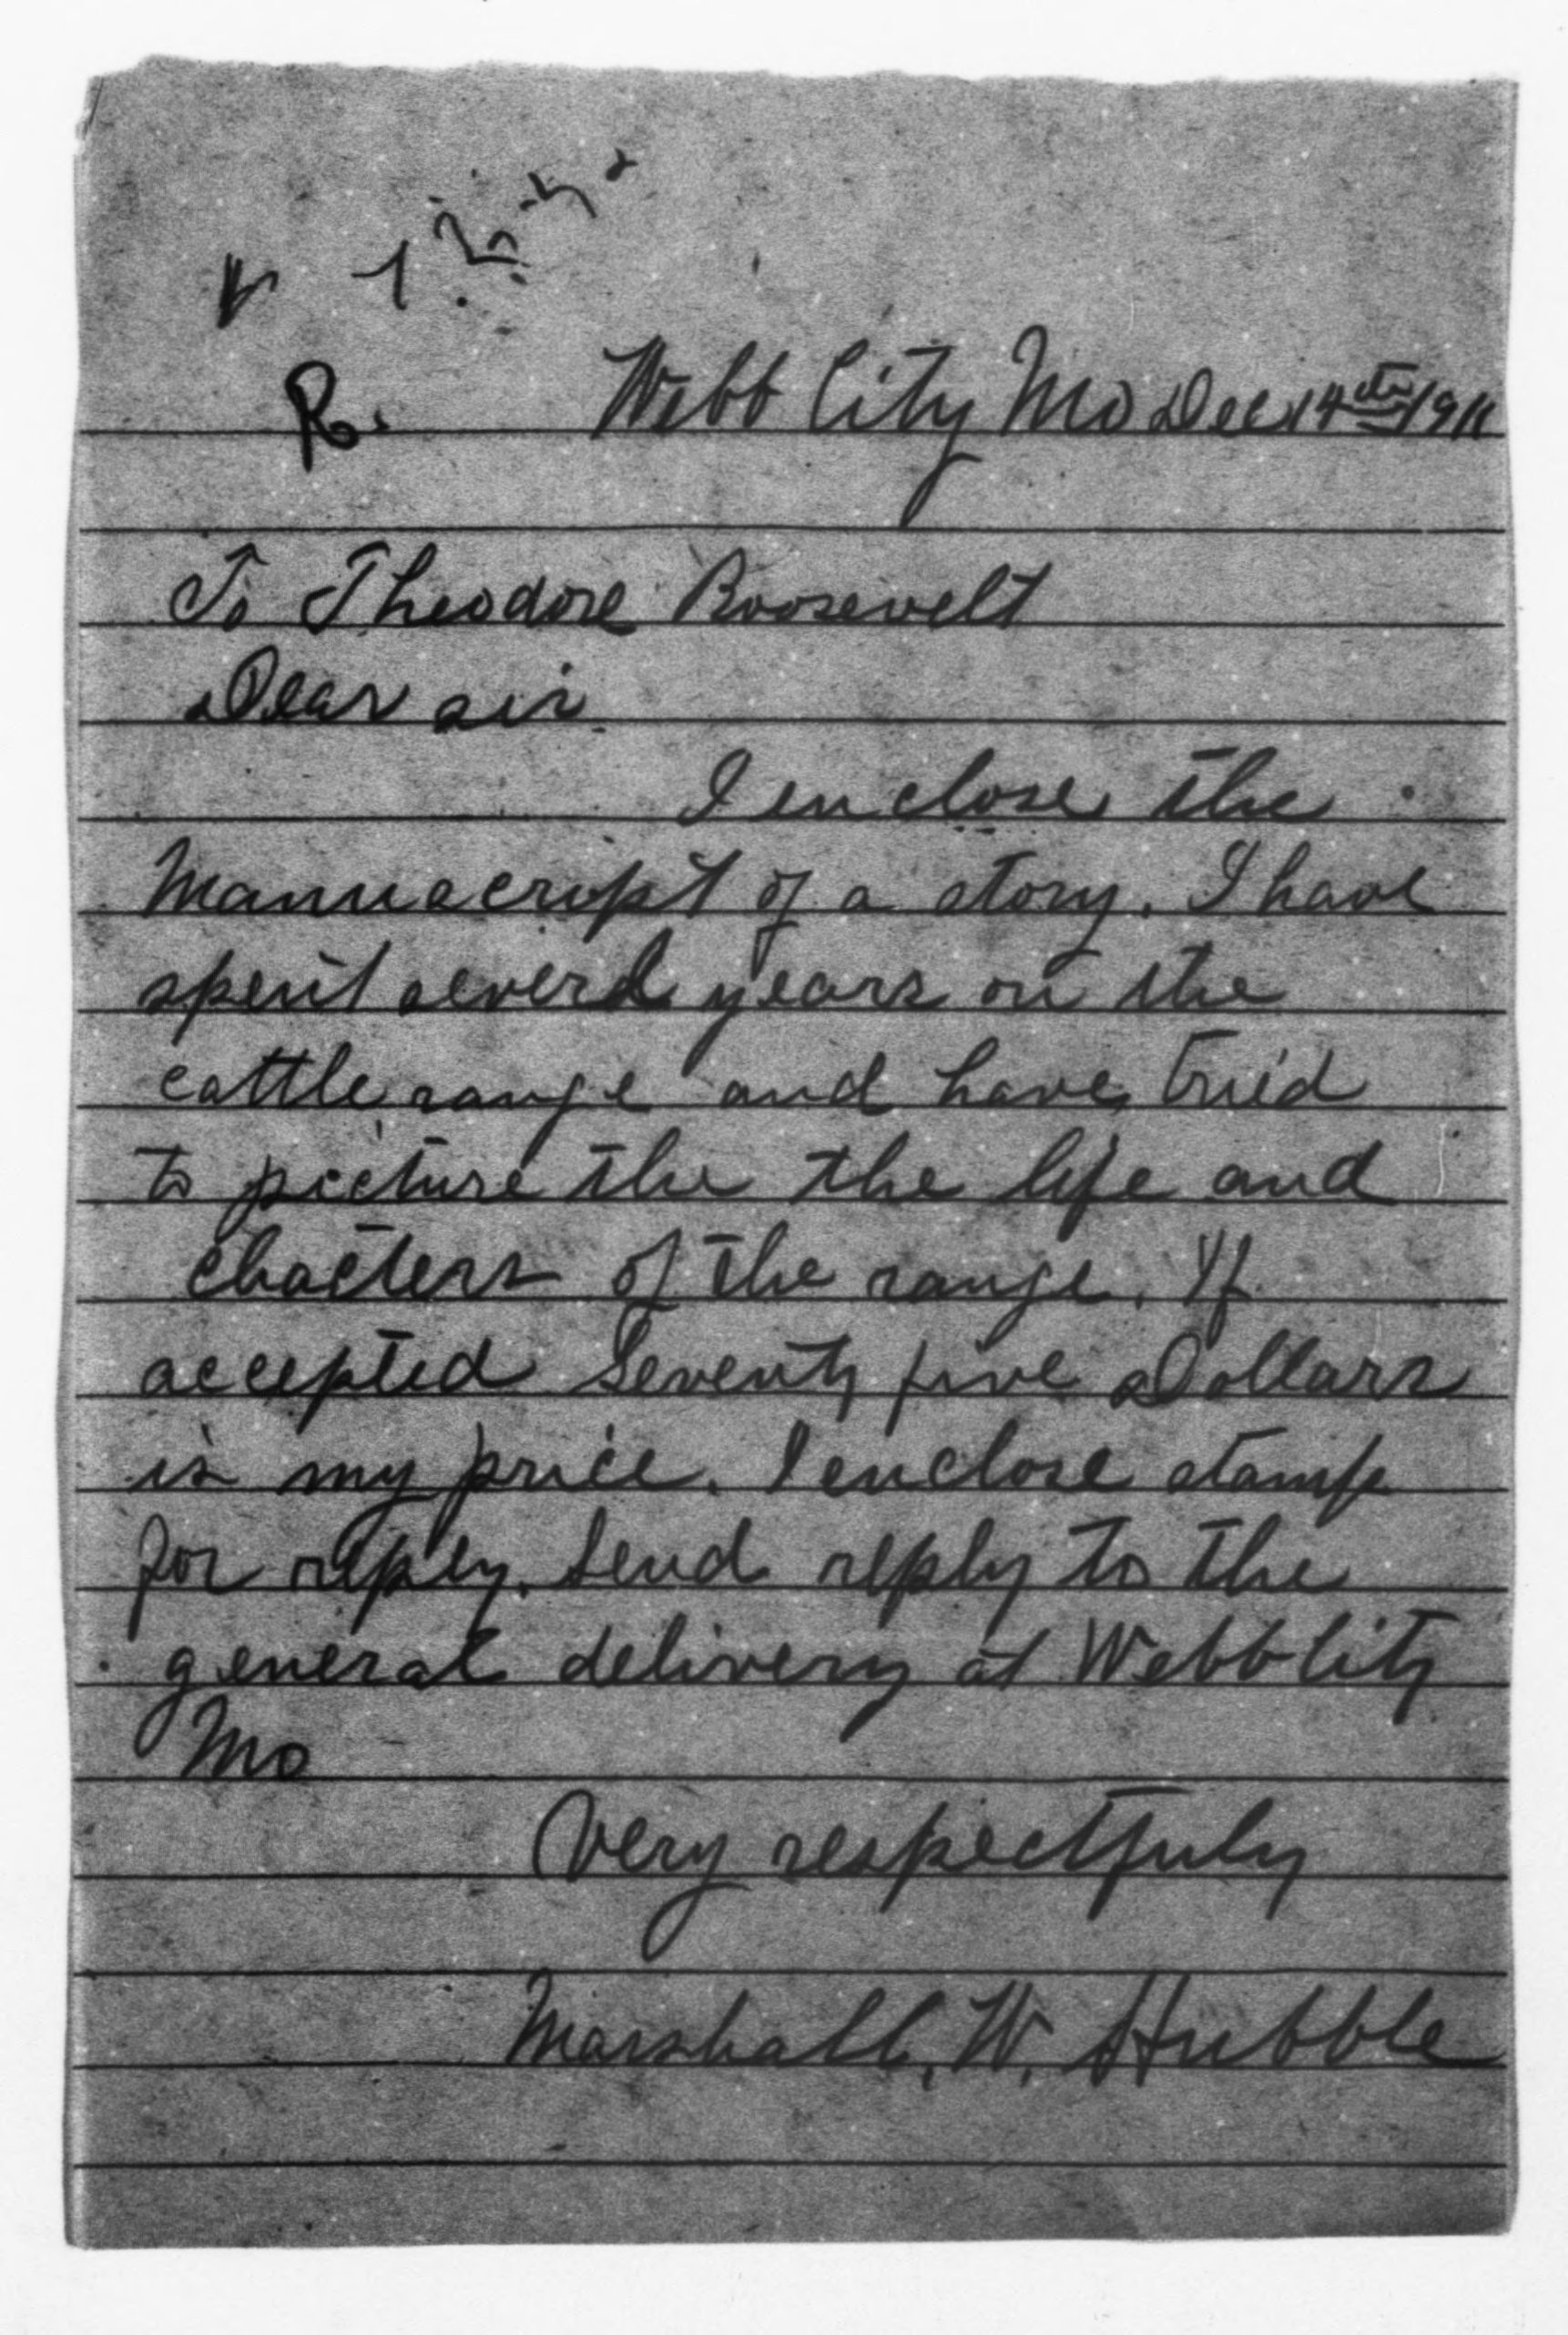 R.
Webb City Mo Dec 14th 1911
To Theodore Roosevelt
Dear sir
I enclose the
Manuscript of a story. I have
spent severel years on the
cattle range and have tried
to picture the the life and
chacters of the range. If
accepted Seventy five Dollars
is my price. I enclose stamp
for reply. Send reply to the
general delivery at Webb City
Mo
Very respectfuly
Marshall. W. Hubble